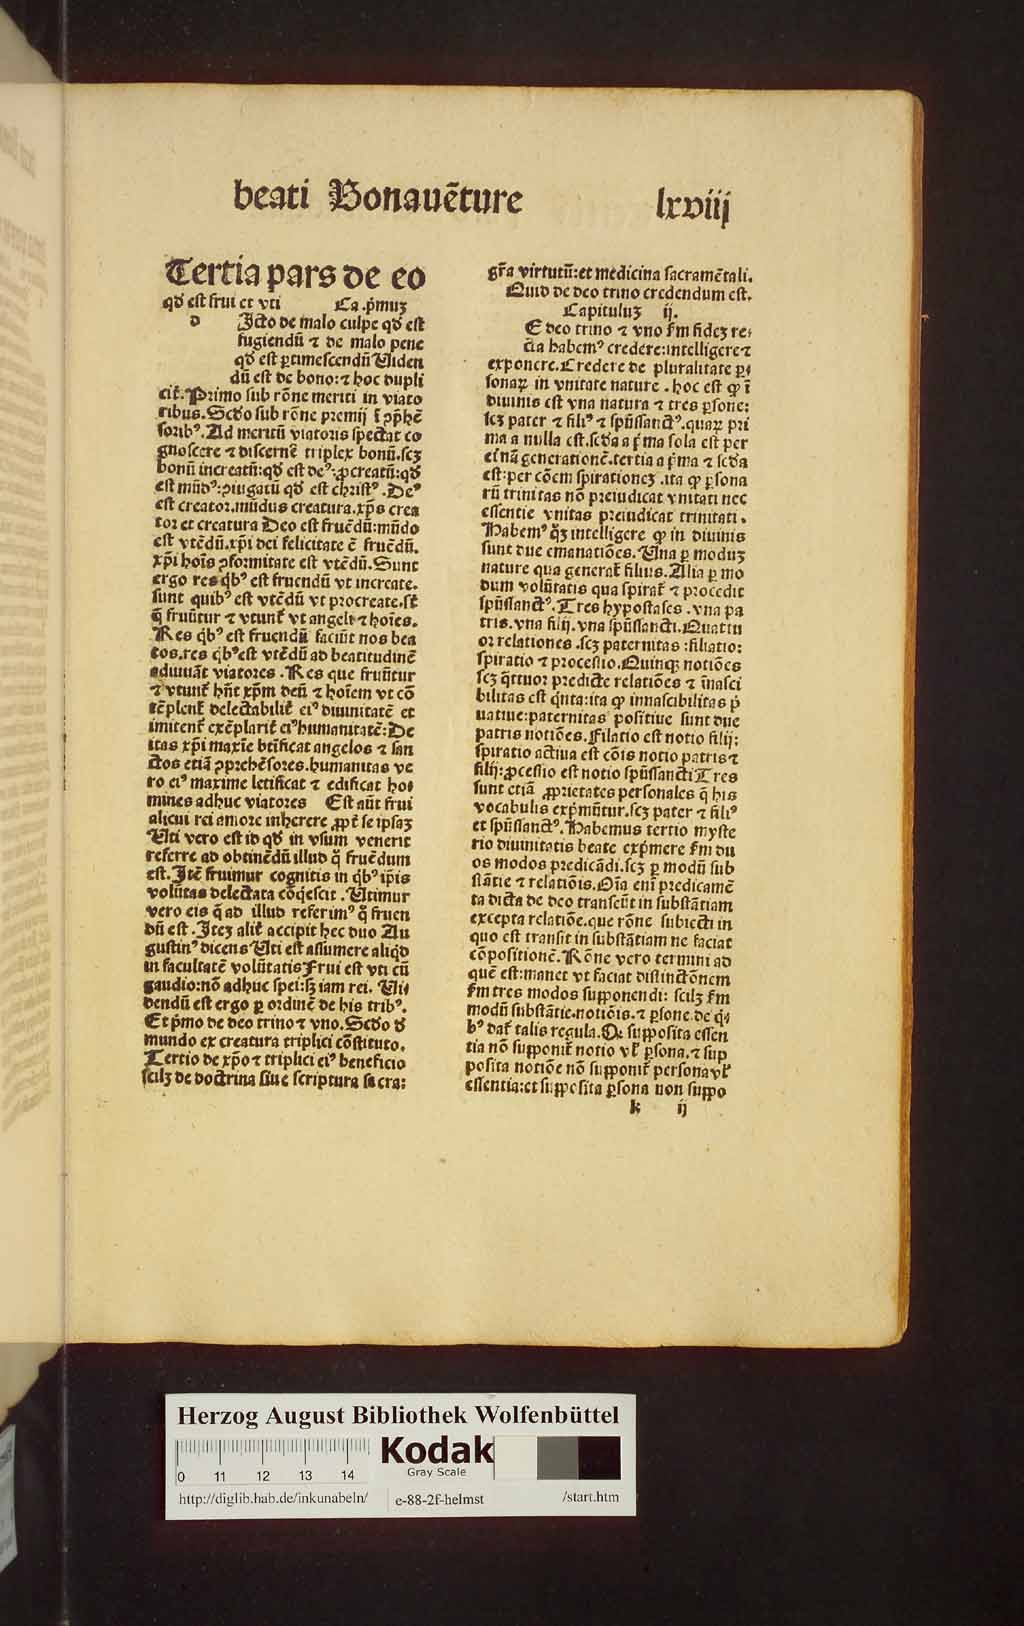 beati Bonauẽture lxviij
Tertia pars de eo
qď est frui et vti Ca.p̃muȝ
d Icto de malo culpe qď est
fugiendũ ⁊ de malo pene
qď est ꝑtimescendũ Uiden
dũ est de bono: ⁊ hoc dupli
cit̃. Primo sub rõne meriti in viato
ribus. Scďo sub rõne premij ĩ ꝯp̃hẽ
soribꝰ. Ad meritũ viatoris spectat co
gnoscere ⁊ discernẽ triplex bonũ. scȝ
bonũ increatũ: qď est deꝰ: ꝓcreatũ: qď
est mũdꝰ: ꝯiugatũ qď est christꝰ. Deꝰ
est creator. mũdus creatura. xp̃s crea
tor et creatura Deo est fruẽdũ: mũdo
est vtẽdũ. xp̃i dei felicitate ẽ fruẽdũ.
xp̃i hoĩs ꝯformitate est vtẽdũ. Sunt
ergo res qͥbꝰ est fruendũ vt increate.
sunt quibꝰ est vtẽdũ vt procreate. st̃
q̃ fruũtur ⁊ vtunt̃ vt angeli ⁊ hoĩes.
Res qͥbꝰ est fruendũ faciũt nos bea
tos. res qͥbꝰ est vtẽdũ ad beatitudinẽ
adiuuãt viatores. Res que fruũtur
⁊ vtunt̃ hñt xp̃m deũ ⁊ hoĩem vt cõ
tẽplent̃ delectabilit̃ eiꝰ diuinitatẽ et
imitent̃ exẽplarit̃ eiꝰ humanitatẽ: De
itas xp̃i maxĩe btĩficat angelos ⁊ san
ctos etiã ꝯprehẽsores. humanitas ve
ro eiꝰ maxime letificat ⁊ edificat ho⸗
mines adhuc viatores Est aũt frui
alicui rei amore inherere ꝓpt̃ se ipsaȝ
Uti vero est id qď in vsum venerit
referre ad obtinẽdũ illud q̃ fruẽdum
est. Itẽ fruimur cognitis in qͥbꝰ ip̃is
volũtas delectata cõqͥescit. Utimur
vero eis q̃ ad illud referimꝰ q̃ fruen
dũ est. Iteȝ alit̃ accipit hec duo Au
gustinꝰ dicens Uti est assumere aliqͥd
in facultatẽ volũtatis Frui est vti cũ
gaudio: nõ adhuc spei: sȝ iam rei. Ui⸗
dendũ est ergo ꝑ ordinẽ de his tribꝰ.
Et p̃mo de deo trino ⁊ vno. Scďo ď
mundo ex creatura triplici cõstituto.
Tertio de xp̃o ⁊ triplici eiꝰ beneficio
scilȝ de doctrina siue scriptura sacra:
gr̃a virtutũ: et medicina sacramẽtali.
Quid de deo trino credendum est.
Capituluȝ ij.
E deo trino ⁊ vno fm̃ fideȝ re⸗
cta habemꝰ credere: intelligere ⁊
exponere. Credere de pluralitate ꝑ⸗
sonaꝝ in vnitate nature. hoc est ꝙ ĩ
diuinis est vna natura ⁊ tres ꝑsone:
scȝ pater ⁊ filiꝰ ⁊ spũssanctꝰ. quaꝝ pri
ma a nulla est. scďa a p̃ma sola est per
eĩnã generationẽ. tertia a p̃ma ⁊ scďa
est: per cõem spirationeȝ. ita ꝙ ꝑsona
rũ trinitas nõ preiudicat vnitati nec
essentie vnitas preiudicat trinitati.
Habemꝰ q̃ȝ intelligere ꝙ in diuinis
sunt due emanatiões. Una ꝑ moduȝ
nature qua generat̃ filius. Alia ꝑ mo
dum volũtatis qua spirat̃ ⁊ procedit
spũssanctꝰ. Tres hypostases. vna pa
tris. vna filij. vna spũssancti. Quattu
or relationes. scȝ paternitas: filiatio:
spiratio ⁊ processio. Quinqȝ notiões
scȝ qͣttuor predicte relatiões ⁊ ĩnasci
bilitas est qͥnta: ita ꝙ innascibilitas p̃
uatiue: paternitas positiue sunt due
patris notiões. Filatio est notio filij:
spiratio actiua est cõis notio patris ⁊
filij: ꝓcessio est notio spũssancti Tres
sunt etiã ꝓprietates personales q̃ his
vocabulis exp̃mũtur. scȝ pater ⁊ filiꝰ
et spũssanctꝰ. Habemus tertio myste
rio diuinitatis beate exp̃mere fm̃ du
os modos predicãdi. scȝ ꝑ modũ sub
stãtie ⁊ relatiõis. Oĩa eni predicamẽ
ta dicta de deo transeũt in substãtiam
excepta relatiõe. que rõne subiecti in
quo est transit in substãtiam ne faciat
cõpositionẽ. Rõne vero termini ad
quẽ est: manet vt faciat distinctõnem
fm̃ tres modos supponendi: scilȝ fm̃
modũ substãtie. notiõis. ⁊ ꝑsone. de qͥ⸗
bꝰ dat̃ talis regula. Qꝙ supposita essen
tia nõ supponit̃ notio vl̃ ꝑsona. ⁊ sup
posita notiõe nõ supponit̃ persona vl̃
essentia: et supposita ꝑsona non suppo
k ij
Herzog August Bibliothek Wolfenbüttel
0 11 12 13 14
Kodak
Gray Scale
http://diglib.hab.de/inkunabeln/ e-88-2f-helmst /start.htm